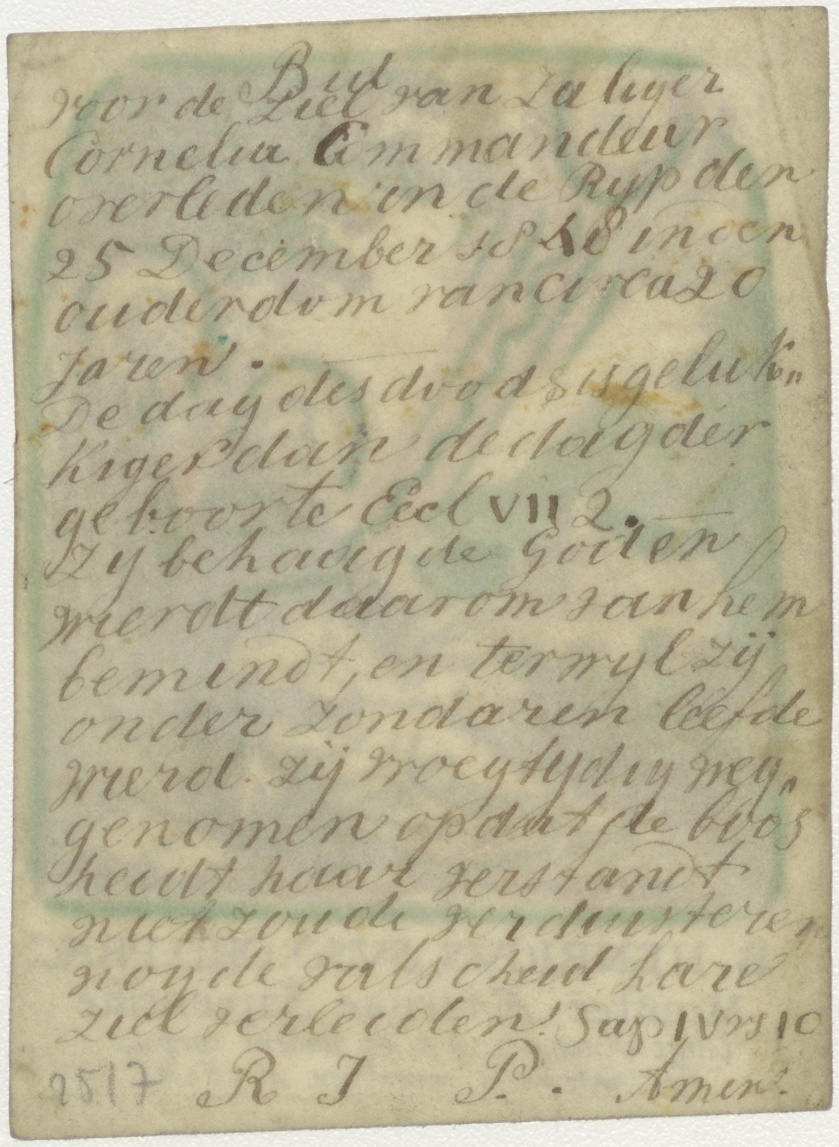 Bid
voor de Ziel van Zaliger
Cornelia Commandeur
overleden in de Ryp den
25 December 1848 in den
ouderdom van circa 20
Jaren.
De dag des doods is geluk„
kiger dan de dag der
geboorte Eccl VII 2.
Zy behaagde God en
wierdt daarom van hem
bemindt, en terwyl zij
onder zondaren leefde
wierd zij vroegtydig weg„
genomen opdat de boos
heidt haar verstandt
niet zoude verduisteren
nog de valscheid hare
ziel verleiden! Sap IV vs 10
R I P. Amen.
2517